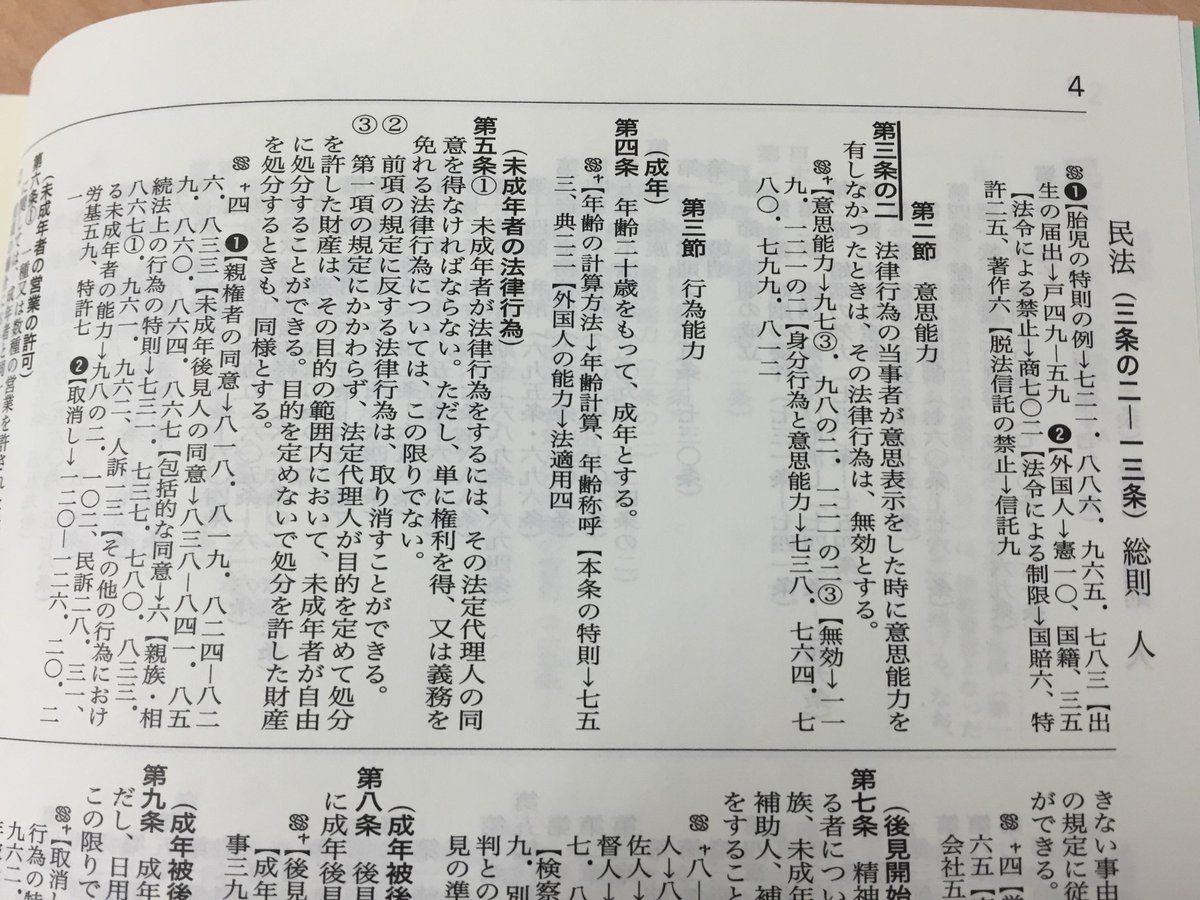 4
民法（三条の二―一三条）総則　人
❶【胎児の特則の例→七二一．八八六．九六五．七八三【出
生の届出→戸四九―五九　❷【外国人→憲一〇、国籍、三五
【法令による禁止→商七〇二【法令による制限→国賠六、特
許二五、著作六【脱法信託の禁止→信託九
第二節　意思能力
第三条の二　法律行為の当事者が意思表示をした時に意思能力を
有しなかったときは、その法律行為は、無効とする。
＋【意思能力→九七③．九八の二．一二一の二③【無効→一一
九．一二一の二【身分行為と意思能力→七三八．七六四．七
八〇．七九九．八一二
第三節　行為能力
（成年）
第四条　年齢二十歳をもって、成年とする。
＋【年齢の計算方法→年齢計算、年齢称呼【本条の特則→七五
三、典二二【外国人の能力→法適用四
（未成年者の法律行為）
第五条①　未成年者が法律行為をするには、その法定代理人の同
意を得なければならない。ただし、単に権利を得、又は義務を
免れる法律行為については、この限りでない。
②　前項の規定に反する法律行為は、取り消すことができる。
③　第一項の規定にかかわらず、法定代理人が目的を定めて処分
を許した財産は、その目的の範囲内において、未成年者が自由
に処分することができる。目的を定めないで処分を許した財産
を処分するときも、同様とする。
＋四　❶【親権者の同意→八一八．八一九．八二四―八二
六．八三三【未成年後見人の同意→八三八―八四一．八五
九．八六〇．八六四．八六七【包括的な同意→六【親族・相
続法上の行為の特則→七三一．七三七．七八〇．八三三．
八六七①．九六一．九六二、人訴一三【その他の行為におけ
る未成年者の能力→九八の二．一〇二、民訴二八．三一、
労基五九、特許七　❷【取消し→一二〇―一二六．二〇．二
一
（未成年者の営業の許可）
第六条①　一種又は数種の営業を許され
きない事由
の規定に従
ができる。
＋四【
六五【
会社五
（後見開始
第七条　精神
る者につい
族、未成年
補助人、補
をすること
＋八
人→八
佐人→
督人→
七．八
九．別
【検察
判との
見の準
（成年被後
第八条　後見
に成年後見
＋【後見
【成年
事三九
（成年被後
第九条　成年
だし、日用
この限りで
＋【取消し
行為の特
九六二．